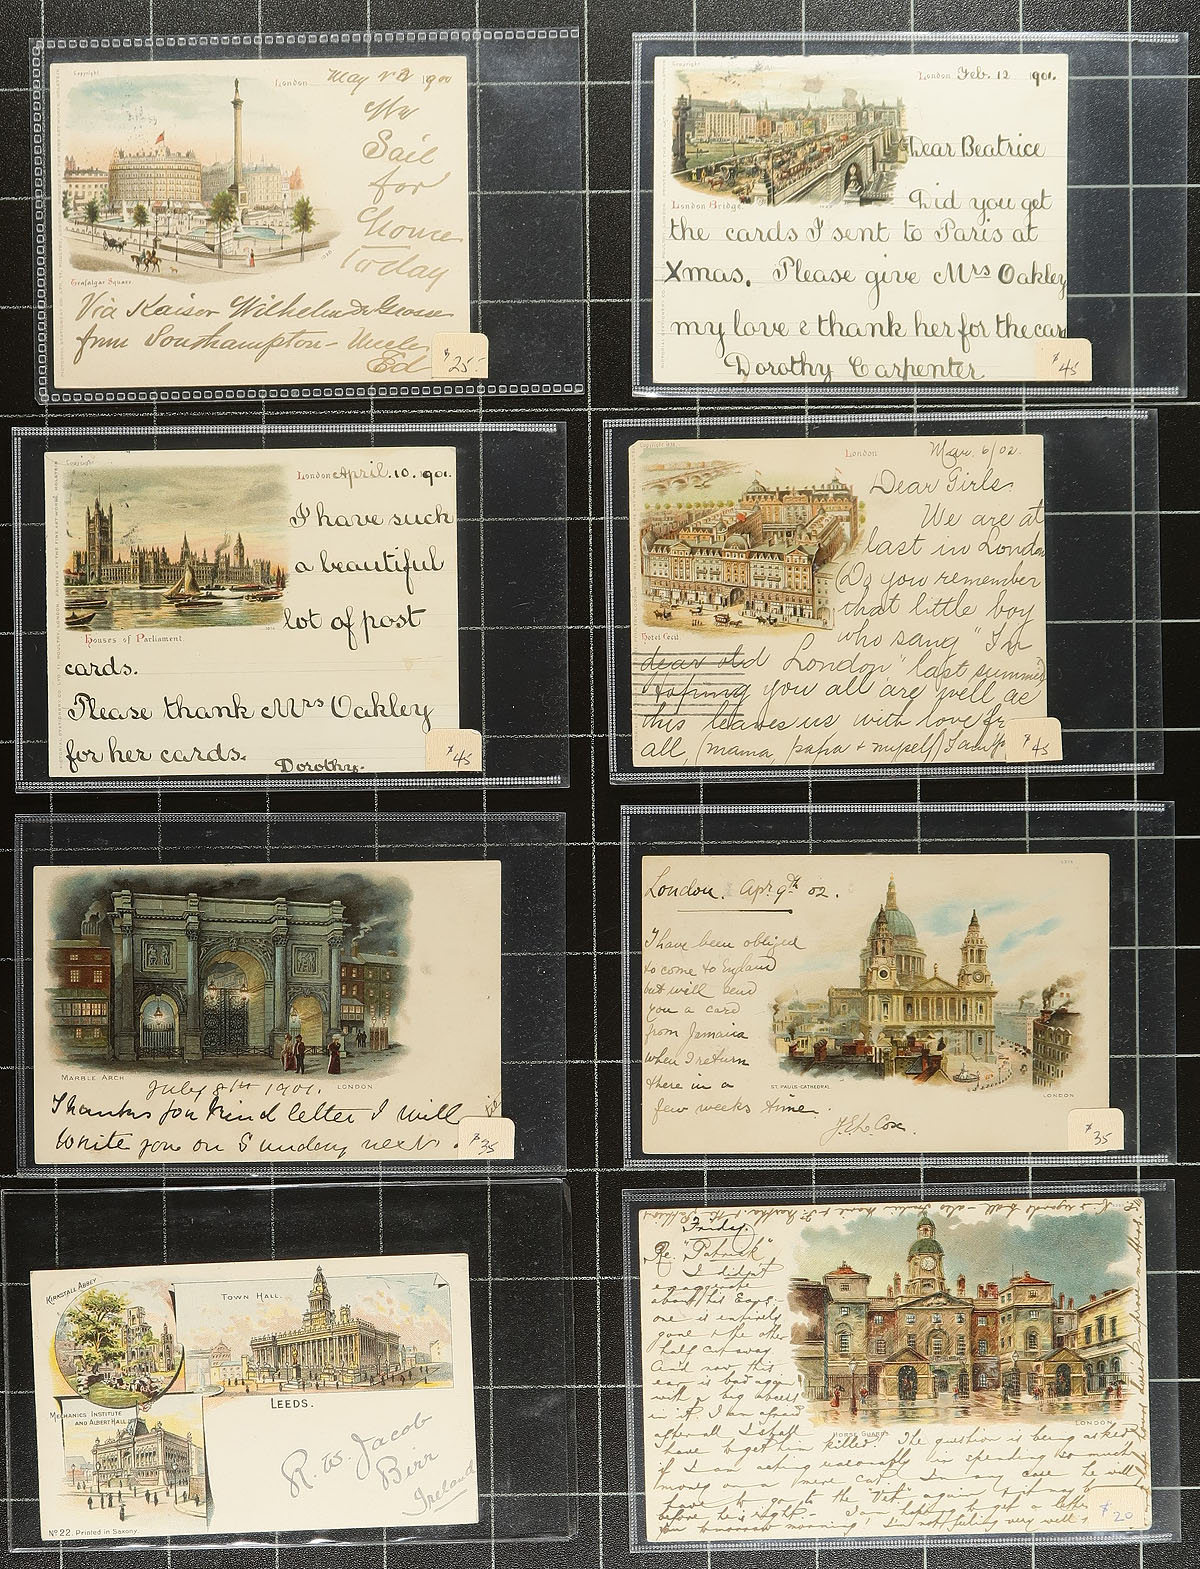 Copyright
London May 1900
We
Sail
for
Home
Today
Trafalgar Square
Via Kaiser Wilhelm de Grosse
from Southampton - Uncle
Ed
$25-
London Feb. 12 1901.
Dear Beatrice
London Bridge.
Did you get
the cards I sent to Paris at
Xmas. Please give Mrs Oakley
my love & thank her for the car
Dorothy Carpenter
$45
Copyright
London April. 10. 1901.
I have such
a beautiful
lot of post
Houses of Parliament
cards.
Please thank Mrs Oakley
for her cards.
Dorothy.
$45
London Mar. 6/02.
Dear Girls.
We are at
last in London
Do you remember
that little boy
who sang "In
Hotel Cecil
dear old London" last summer
Hoping you all are well as
this leaves us with love fr
all, (mama, papa & myself)
$45
MARBLE ARCH
LONDON
July 8th 1901.
Thanks for kind letter I will
write you on Sunday next.
$35
London. Apr. 9th 02.
I have been obliged
to come to England
but will send
you a card
from Jamaica
when I return
there in a
few weeks time.
ST. PAULS-CATHEDRAL
LONDON
J.E.L. Cox.
$35
KIRKSTALL ABBEY
TOWN HALL.
LEEDS.
MECHANICS INSTITUTE
AND ALBERT HALL
R. W. Jacob
Birr
Ireland
No 22. Printed in Saxony.
Friday.
Re. "Patrick"
I didn't
exaggerate
about his Ears -
one is entirely
gone & the other
half cut away
And now this
ear is bad again
with a big abcess
in it. I am afraid
after all I shall
have to get him killed. The question is being asked
LONDON
HORSE GUARDS
if I am acting reasonably in spending so much
money on a mere cat. In any case he will
have to go to the "Vet" again & it may be
before he is right. - I am hoping to get a letter
you tomorrow morning! I'm not feeling very well &
$20